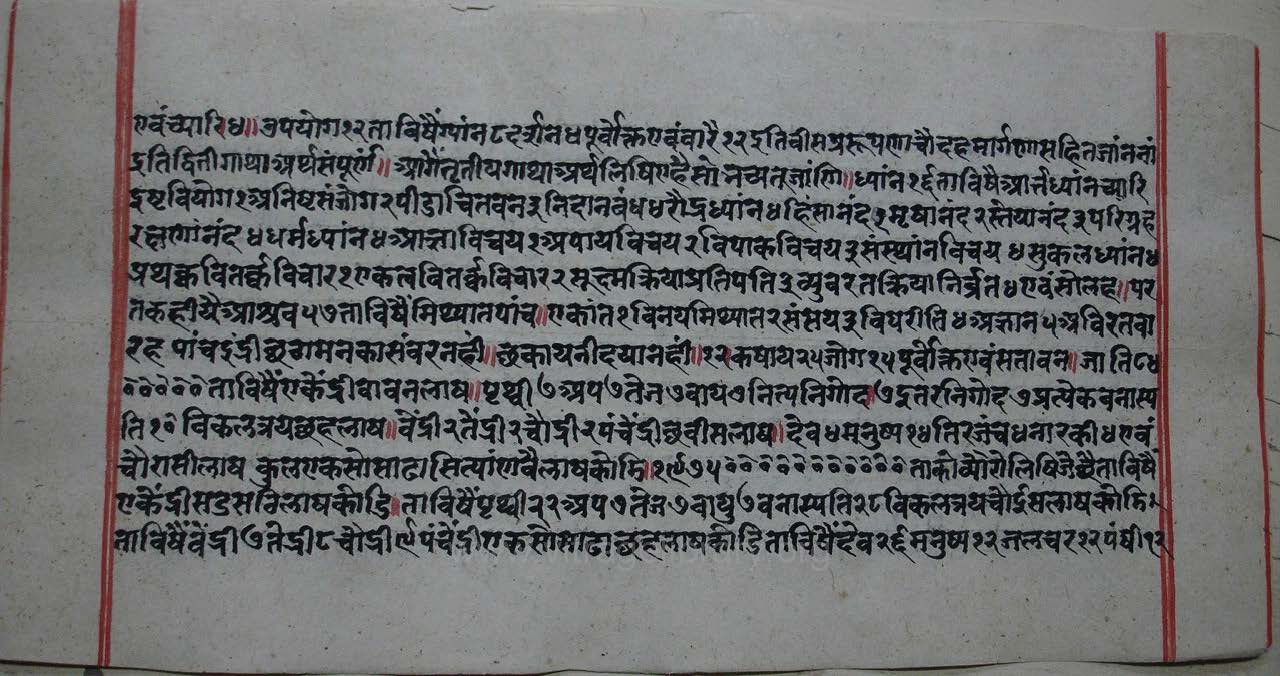 एवंच्यारिध॥उपयोग१२ताविषैंग्यांन८दर्शनधपूर्वोक्तिएवंवारै१२इतिवीसप्ररूपणाचौदहमार्गणासहितजांननां
इतिद्वितीगाथाअर्थसंपूर्ण॥आगैंतृतीयगाथाअर्थलिषिएहैंसो जांणि॥ध्यांन१६ताविषैआर्त्तध्यांनच्यारि
इष्टवियोग१अनिष्टसंजोग२पीडाचिंतवन३निदानवंध४रौद्रध्यांन४हिंसानंद१मृषानंद२स्तेयानंद३परिग्रह
रक्षणांनंद४धर्मध्यांन४आज्ञाविचय१अपायविचय२विपाकविचय३संस्थांनविचय४सुकलध्यांन४
प्रथक्कवितर्क्कविचार१एकत्ववितर्क्कविचार२सूक्ष्मक्रियाप्रतिपति३व्युवरतक्रियानिर्वृत४एवंसोलह॥पर
तकहीयैआश्रव५७ताविषैंमिथ्यातपांच॥एकांत१विनयमिथ्यात२संसय३विपरीति४अज्ञान५अविरतवा
रह पांचइंद्रीछठामनकासंवरनहीं॥छकायनीदयानहीं॥१२कषाय२५जोग१५पूर्वोक्तिएवंसतावन॥जाति८४
०००००ताविषैंएकेंद्रीवावनलाष॥पृथ्वी७अप७तेज७वायु७नित्यनिगोद७इतरनिगोद७प्रत्येकवनास्प
ति१०विकलत्रयछहलाष॥वेंद्री२तेंद्री२चौंद्री२पंचेंद्रीछवीसलाष॥देव४मनुष्य१४तिरजंच४नारकी४एवं
चौरासीलाष कुलएकसोसाढासित्यांणवैलाषकोडि॥१९७५००००००००००००ताकोव्योरोलिषिजैछैताविषैं
एकेंद्रीसडसठिलाषकोडि।ताविषैंपृथ्वी२२अप७तेज३वायु७वनास्पति२८विकलत्रयचौईसलाषकोडि।
ताविषैंवेंद्री७तेंद्री८चौंद्री९पंचेंद्रीएकसौसाढाछहलाषकोडिताविषैंदेव२६मनुष्य१२जलचर१२पंषी१२